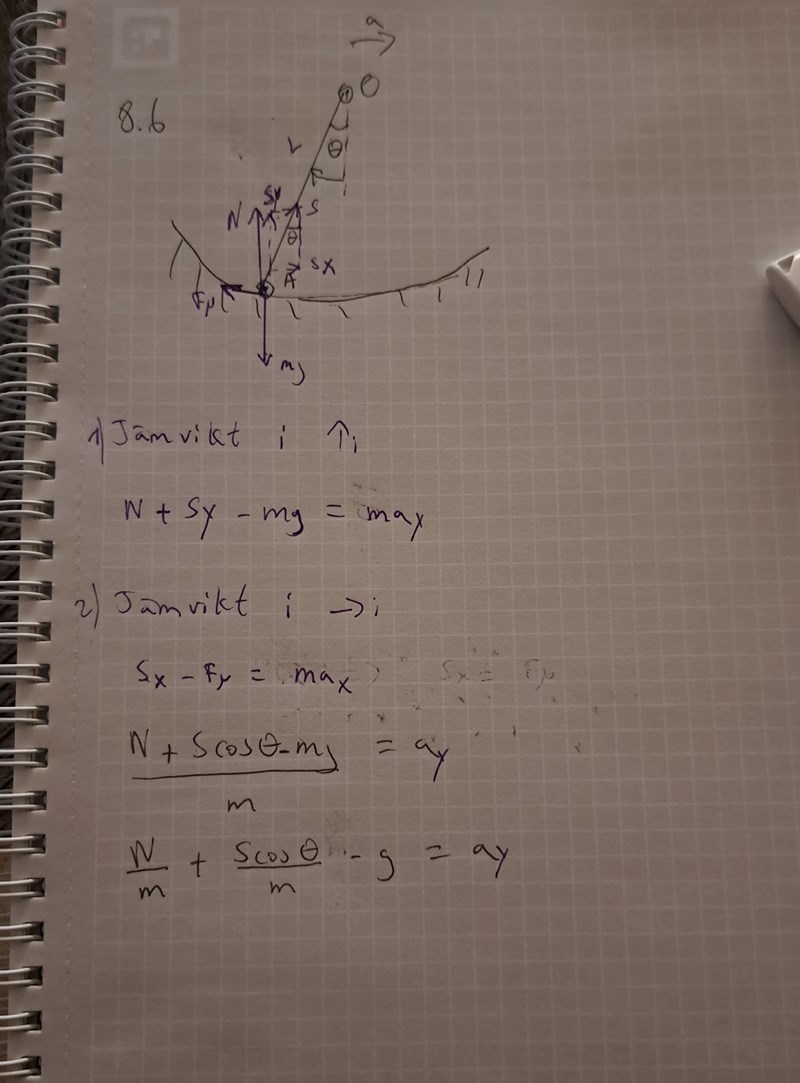 a
8.6
O
r
θ
N Sy S
θ
A Sx
Fμ
mg
1) Jämvikt i ↑;
N + Sy - mg = may
2) Jämvikt i →;
Sx - Fμ = max Sx = Fμ
N + Scosθ - mg = ay
m
N + Scosθ - g = ay
m m